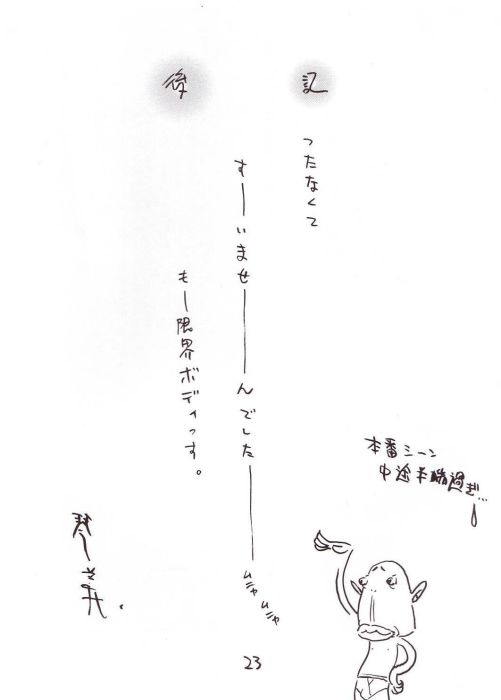 後記
つたなくて
すーいませーーんでしたーー
ムニャムニャ
もー限界ボディっす。
本番シーン
中途半端過ぎ…
23